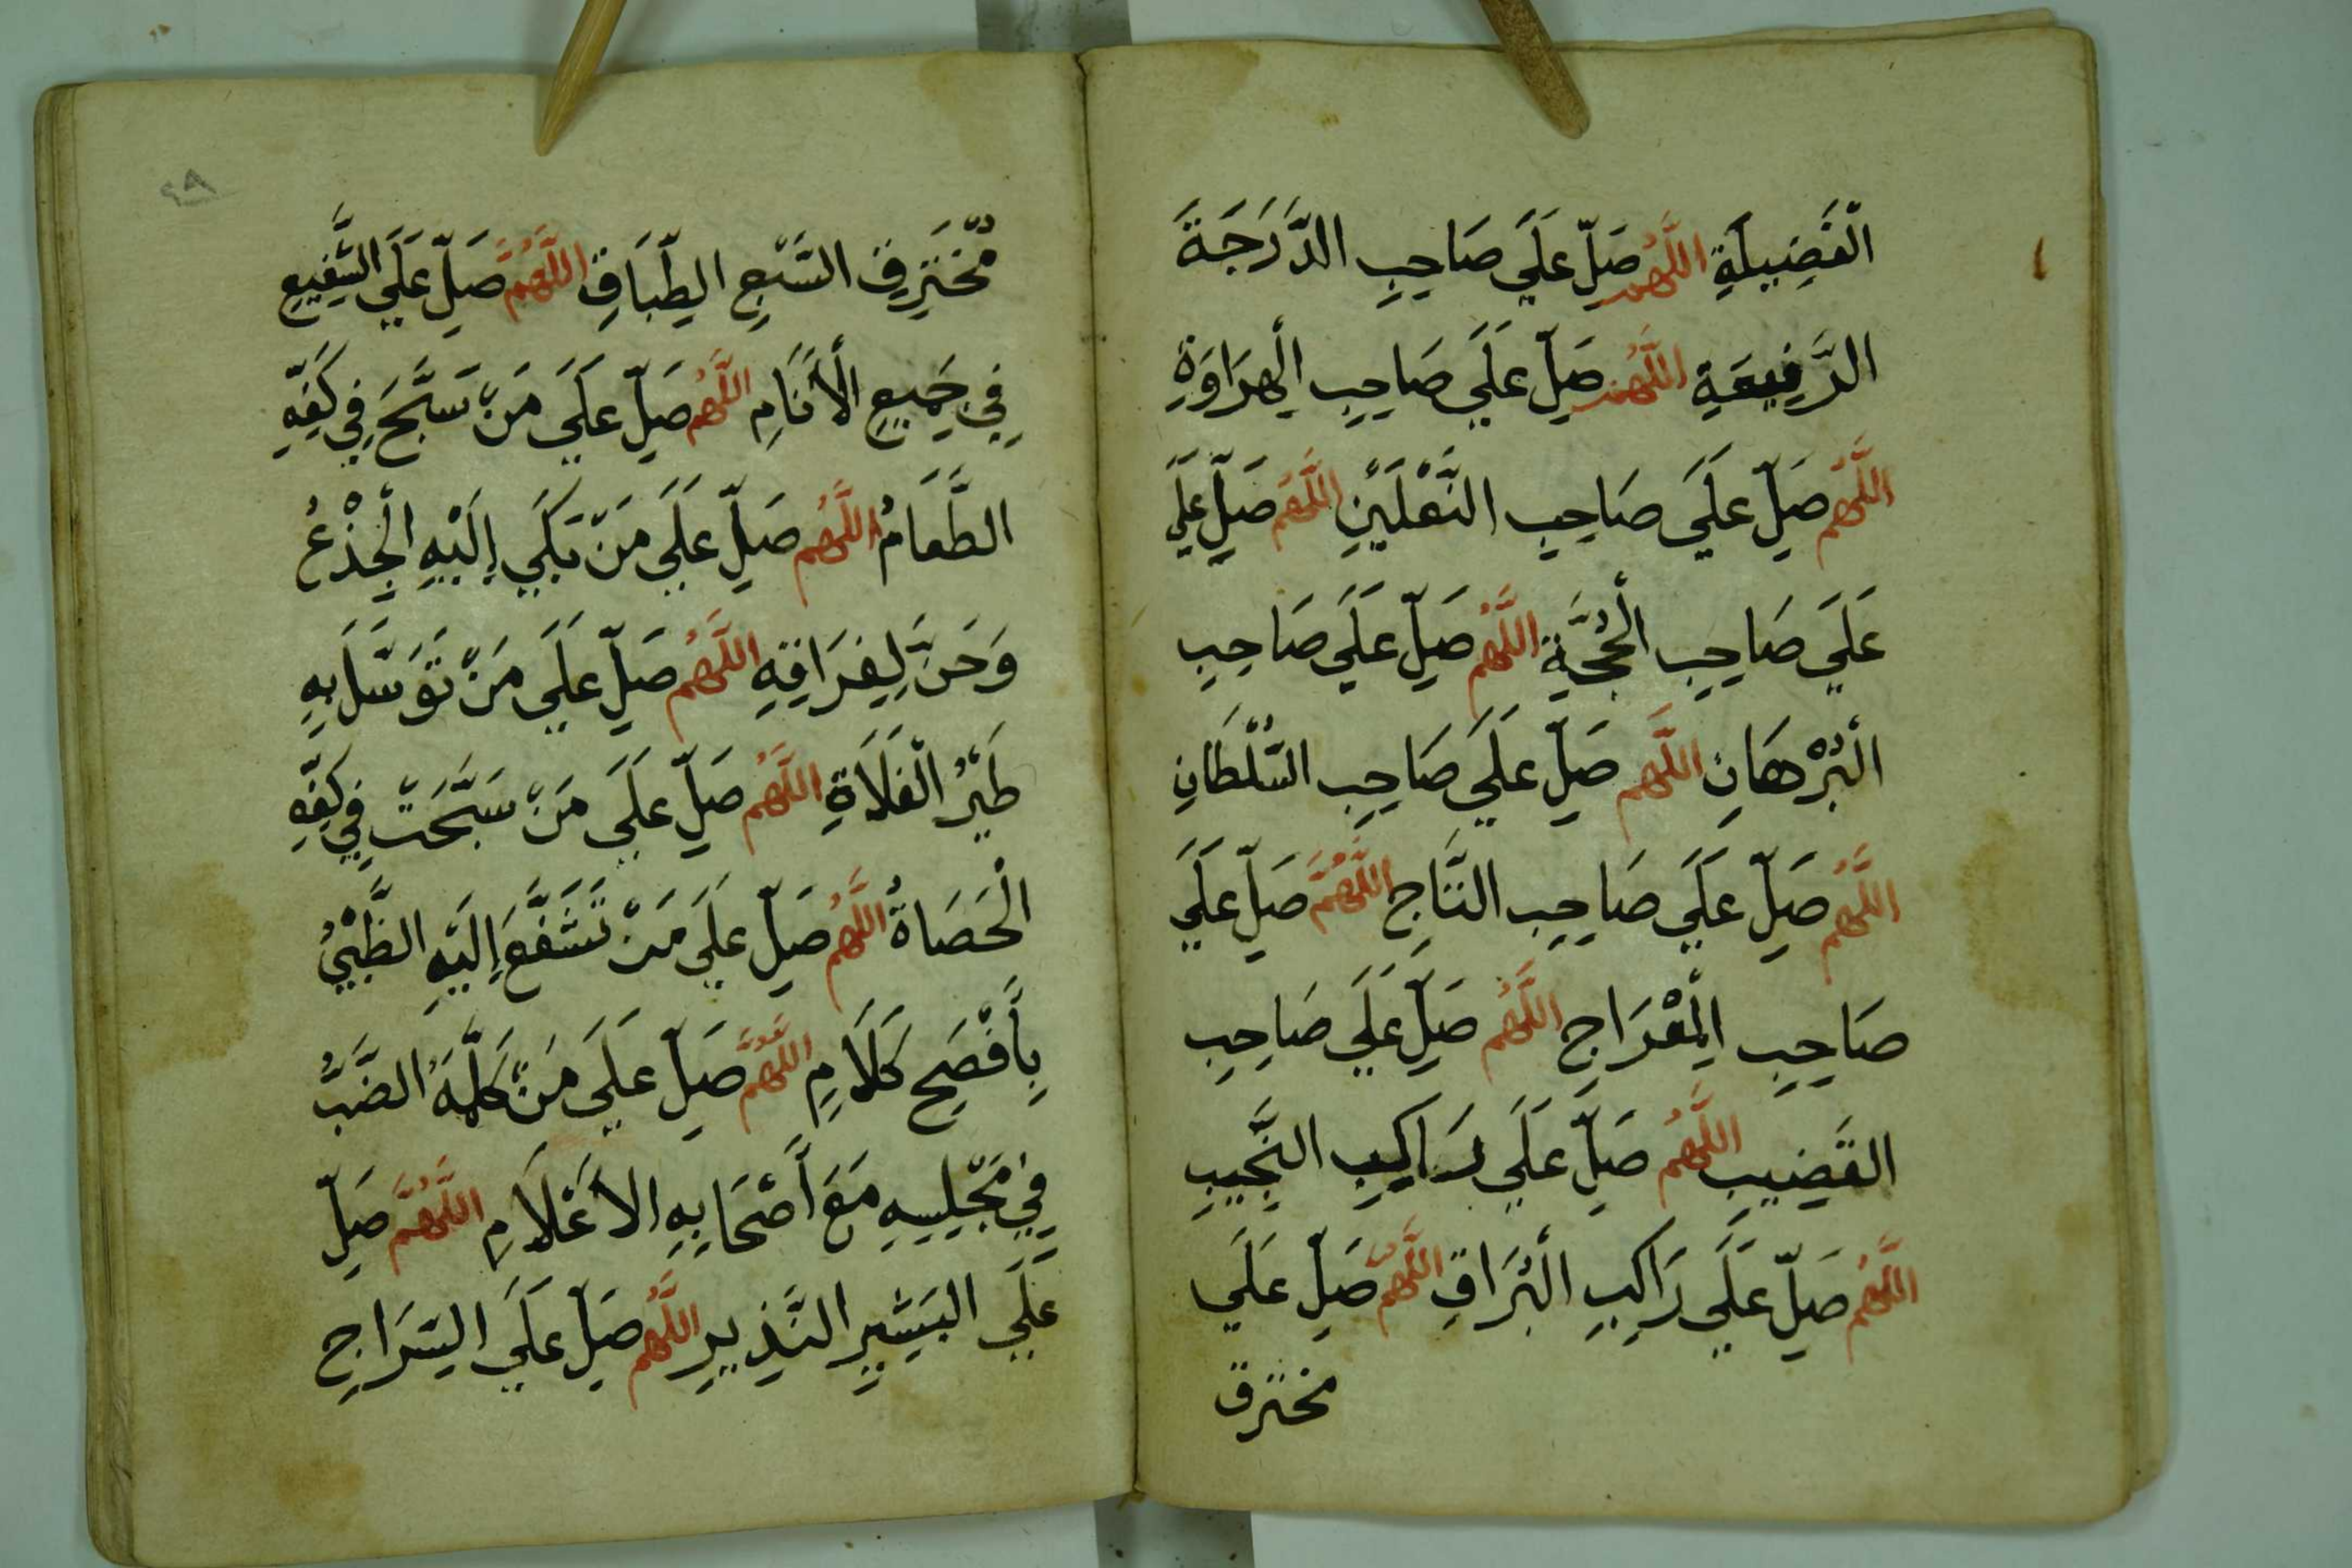 الْفَضِيلَةِ اللَّهُمَّ صَلِّ عَلَي صَاحِبِ الدَّرَجَةَ
الرَّفِيعَةِ اللَّهُمَّ صَلِّ عَلَي صَاحِبِ الْهِرَاوَةِ
اللَّهُمَّ صَلِّ عَلَي صَاحِبِ النَّعْلَيْنِ اللَّهُمَّ صَلِّ عَلَي
عَلَي صَاحِبِ الْحُجَّةِ اللَّهُمَّ صَلِّ عَلَي صَاحِبِ
الْبُرْهَانِ اللَّهُمَّ صَلِّ عَلَي صَاحِبِ السُّلْطَانِ
اللَّهُمَّ صَلِّ عَلَي صَاحِبِ التَّاجِ اللَّهُمَّ صَلِّ عَلَي
صَاحِبِ الْمِعْرَاجِ اللَّهُمَّ صَلِّ عَلَي صَاحِبِ
القَضِيبِ اللَّهُمَّ صَلِّ عَلَي رَاكِبِ النَّجِيبِ
اللَّهُمَّ صَلِّ عَلَي رَاكِبِ الْبُرَاقِ اللَّهُمَّ صَلِّ عَلَي
مخترق
٩٨
مُّخْتَرِقِ السَّبْعِ الطِّبَاقِ اللَّهُمَّ صَلِّ عَلَي الشَّفِيعِ
فِي جَمِيعِ الْأَنَامِ اللَّهُمَّ صَلِّ عَلَي مَنْ سَبَّحَ فِي كَفِّهِ
الطَّعَامُ اللَّهُمَّ صَلِّ عَلَي مَنْ بَكَي إِلَيْهِ الْجِذْعُ
وَحَنَّ لِفِرَاقِهِ اللَّهُمَّ صَلِّ عَلَي مَنْ تَوَسَّلَ بِهِ
طَيْرُ الْفَلَاةِ اللَّهُمَّ صَلِّ عَلَي مَنْ سَبَّحَتْ فِي كَفِّهِ
الْحَصَاةُ اللَّهُمَّ صَلِّ عَلَي مَنْ تَشَفَّعَ إِلَيْهِ الظَّبْيُ
بِأَفْصَحِ كَلَامٍ اللَّهُمَّ صَلِّ عَلَي مَنْ كَلَّمَهُ الضَّبُّ
فِي مَجْلِسِهِ مَعَ أَصْحَابِهِ الاَعْلَامِ اللَّهُمَّ صَلِّ
عَلَي البَشِيرِ النَّذِيرِ اللَّهُمَّ صَلِّ عَلَي السِّرَاجِ